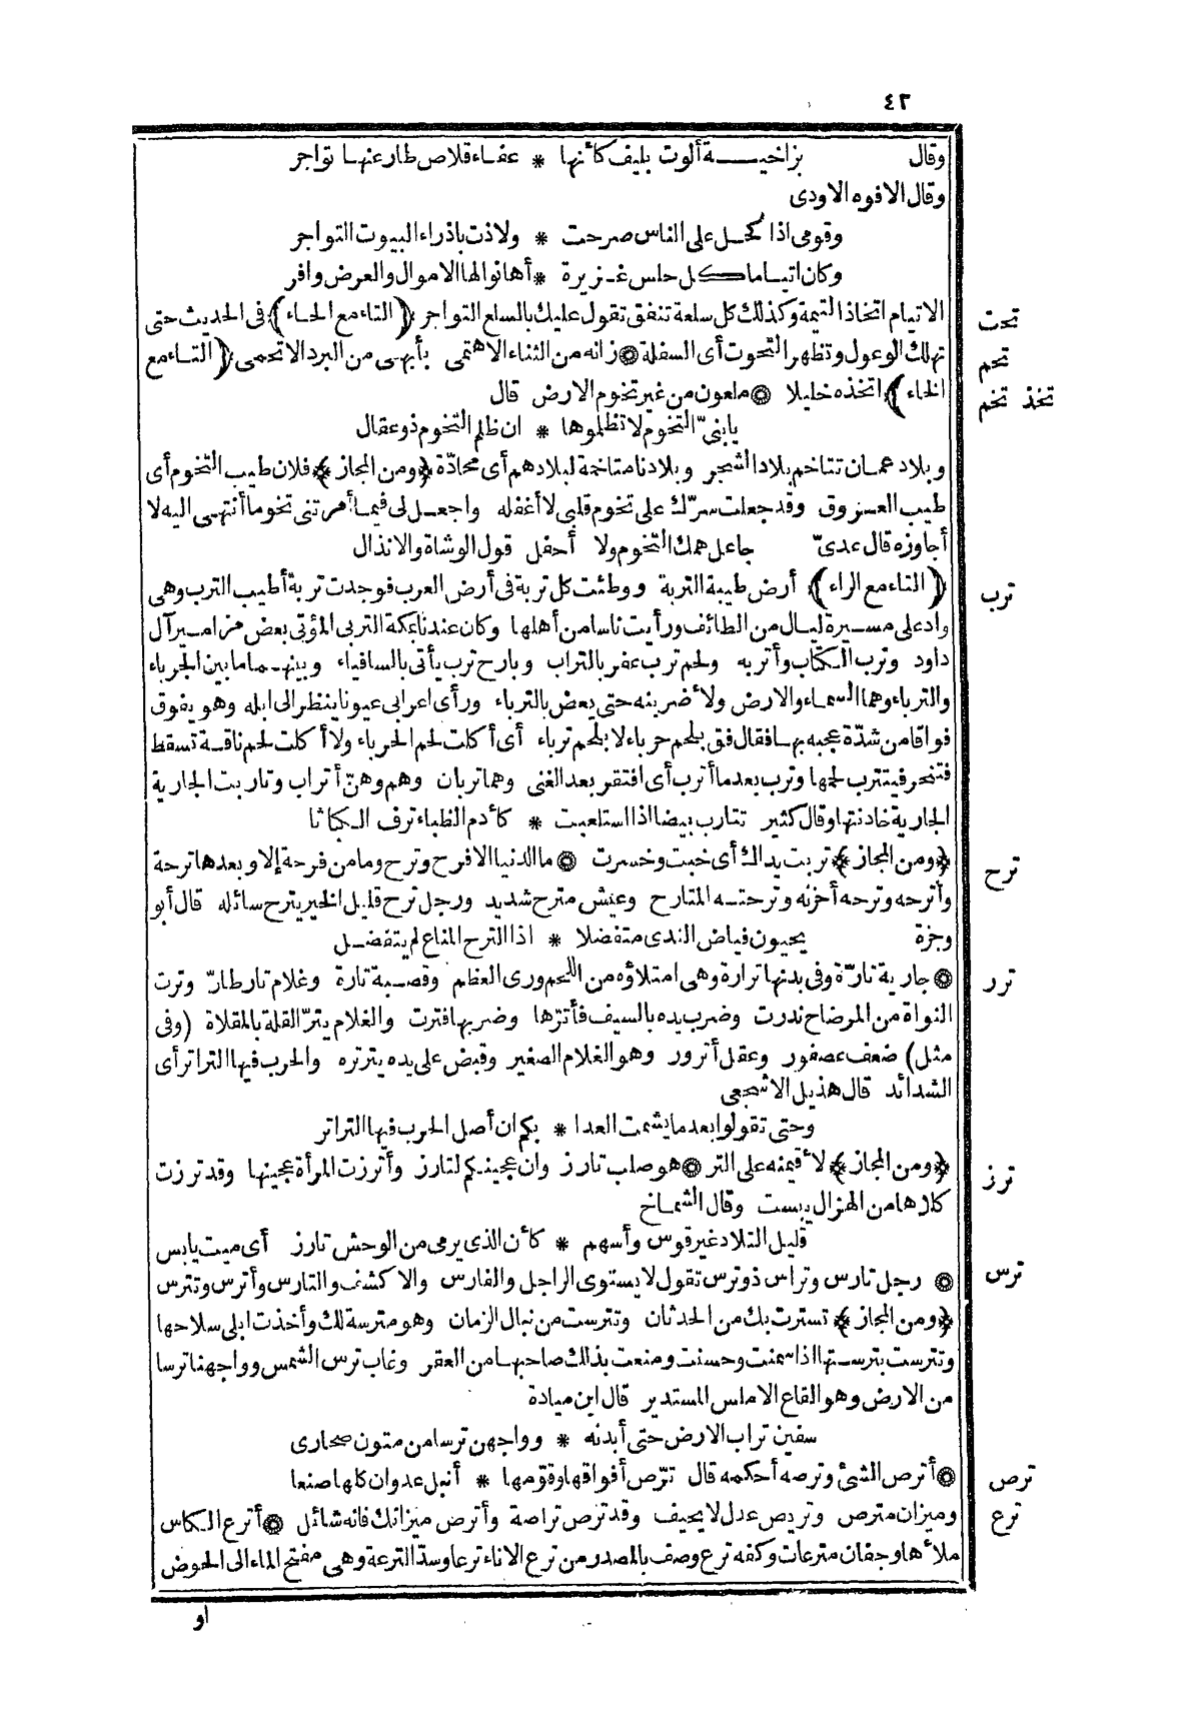 ٤٢
وقال بزاخيــة ألوت بليف كأنها * عفاء قلاص طار عنها تواجر
وقال الافوه الاودى
وقومى اذا كحل على الناس صرحت * ولاذت باذراء البيوت التواجر
وكان اتياما كل حلس غزيرة * أهانوا لها الاموال والعرض وافر
الاتيام اتخاذ التيمة وكذلك كل سلعة تنفق تقول عليك بالسلع التواجر ﴿التاء مع الحاء﴾ فى الحديث حتى
تحت
تهلك الوعول وتظهر التحوت أى السفلة ۞ زانه من الثناء الاهتمى بأبهى من البرد الاتحمى ﴿التاء مع
تحم
الخاء﴾ اتخذه خليلا ۞ ملعون من غير تخوم الارض قال
تخذ تخم
يا بنىّ التخوم لا تظلموها * ان ظلم التخوم ذو عقال
وبلاد عمان تتاخم بلاد الشحر وبلادنا متاخمة لبلادهم أى محادّة ﴿ومن المجاز﴾ فلان طيب التخوم أى
طيب العروق وقد جعلت سرّك على تخوم قلبى لا أغفله واجعل لى فيما أمرتنى تخوما أنتهى اليه لا
أجاوزه قال عدىّ جاعل همك التخوم ولا أحفل قول الوشاة والانذال
﴿التاء مع الراء﴾ أرض طيبة التربة ووطئت كل تربة فى أرض العرب فوجدت تربة أطيب الترب وهى
ترب
واد على مسيرة ليال من الطائف ورأيت ناسا من أهلها وكان عندنا بمكة التربى المؤتى بعض مزامير آل
داود وترب الكتاب وأتربه ولحم ترب عفر بالتراب وبارح ترب يأتى بالسافياء وبينهما ما بين الجرباء
والترباء وهما السماء والارض ولأضربنه حتى يعض بالترباء ورأى اعرابى عيونا ينظر الى ابله وهو يفوق
فواقا من شدّة عجبه بها فقال فق بلحم حرباء لا بلحم ترباء أى أكلت لحم الحرباء ولا أكلت لحم ناقة تسقط
فتنحر فيتترب لحمها وترب بعدما أترب أى افتقر بعد الغنى وهما تربان وهم وهنّ أتراب وتاربت الجارية
الجارية خادنتها وقال كثير تتارب بيضا اذا استلعبت * كأدم الظباء ترف الكباثا
﴿ومن المجاز﴾ تربت يداك أى خبت وخسرت ۞ ما الدنيا الا فرح وترح وما من فرحة إلا وبعدها ترحة
ترح
وأترحه وترحه أحزنه وترحتــه المتارح وعيش مترح شديد ورجل ترح قليل الخير يترح سائله قال أبو
وجزة يحيون فياض الندى متفضلا * اذا الترح المناع لم يتفضــل
۞ جارية تارّة وفى بدنها ترارة وهى امتلاؤه من اللحم ورى العظم وقصــبة تارة وغلام تار طارّ وترت
ترر
النواة من المرضاح ندرت وضرب يده بالسيف فأترّها وضربها فترت والغلام يترّ القلة بالمقلاة (وفى
مثل) ضعف عصفور وعقل أترور وهو الغلام الصغير وقبض على يده يترتره والحرب فيها التراتر أى
الشدائد قال هذيل الاشجعى
وحتى تقولوا بعد ما يشمت العدا * بكم ان أصل الحرب فيها التراتر
﴿ومن المجاز﴾ لأقيمنه على التر ۞ هو صلب تارز وان عجينكم لتارز وأترزت المرأة عجينها وقد ترزت
ترز
كلاها من الهزال يبست وقال الشماخ
قليل التلاد غير قوس وأسهم * كأن الذى يرمى من الوحش تارز أى ميت يابس
۞ رجل تارس وتراس ذو ترس تقول لا يستوى الراجل والفارس والاكشف والتارس وأترس وتترس
ترس
﴿ومن المجاز﴾ تسترت بك من الحدثان وتترست من نبال الزمان وهو مترسة لك وأخذت ابلى سلاحها
وتترست بترستها اذا سمنت وحسنت ومنعت بذلك صاحبها من العقر وغاب ترس الشمس وواجهنا ترسا
من الارض وهو القاع الاملس المستدير قال ابن ميادة
سفين تراب الارض حتى أبدنه * وواجهن ترسا من متون صحارى
۞ أترص الشئ وترصه أحكمه قال ترّص أفواقها وقوّمها * أنبل عدوان كلها صنعا
ترص
وميزان مترص وتريص عدل لا يحيف وقد ترص تراصة وأترض ميزانك فانه شائل ۞ أترع الكاس
ترع
ملأها وجفان مترعات وكفه ترع وصف بالمصدر من ترع الاناء ترعا وسدّ الترعة وهى مفتح الماء الى الحوض
او